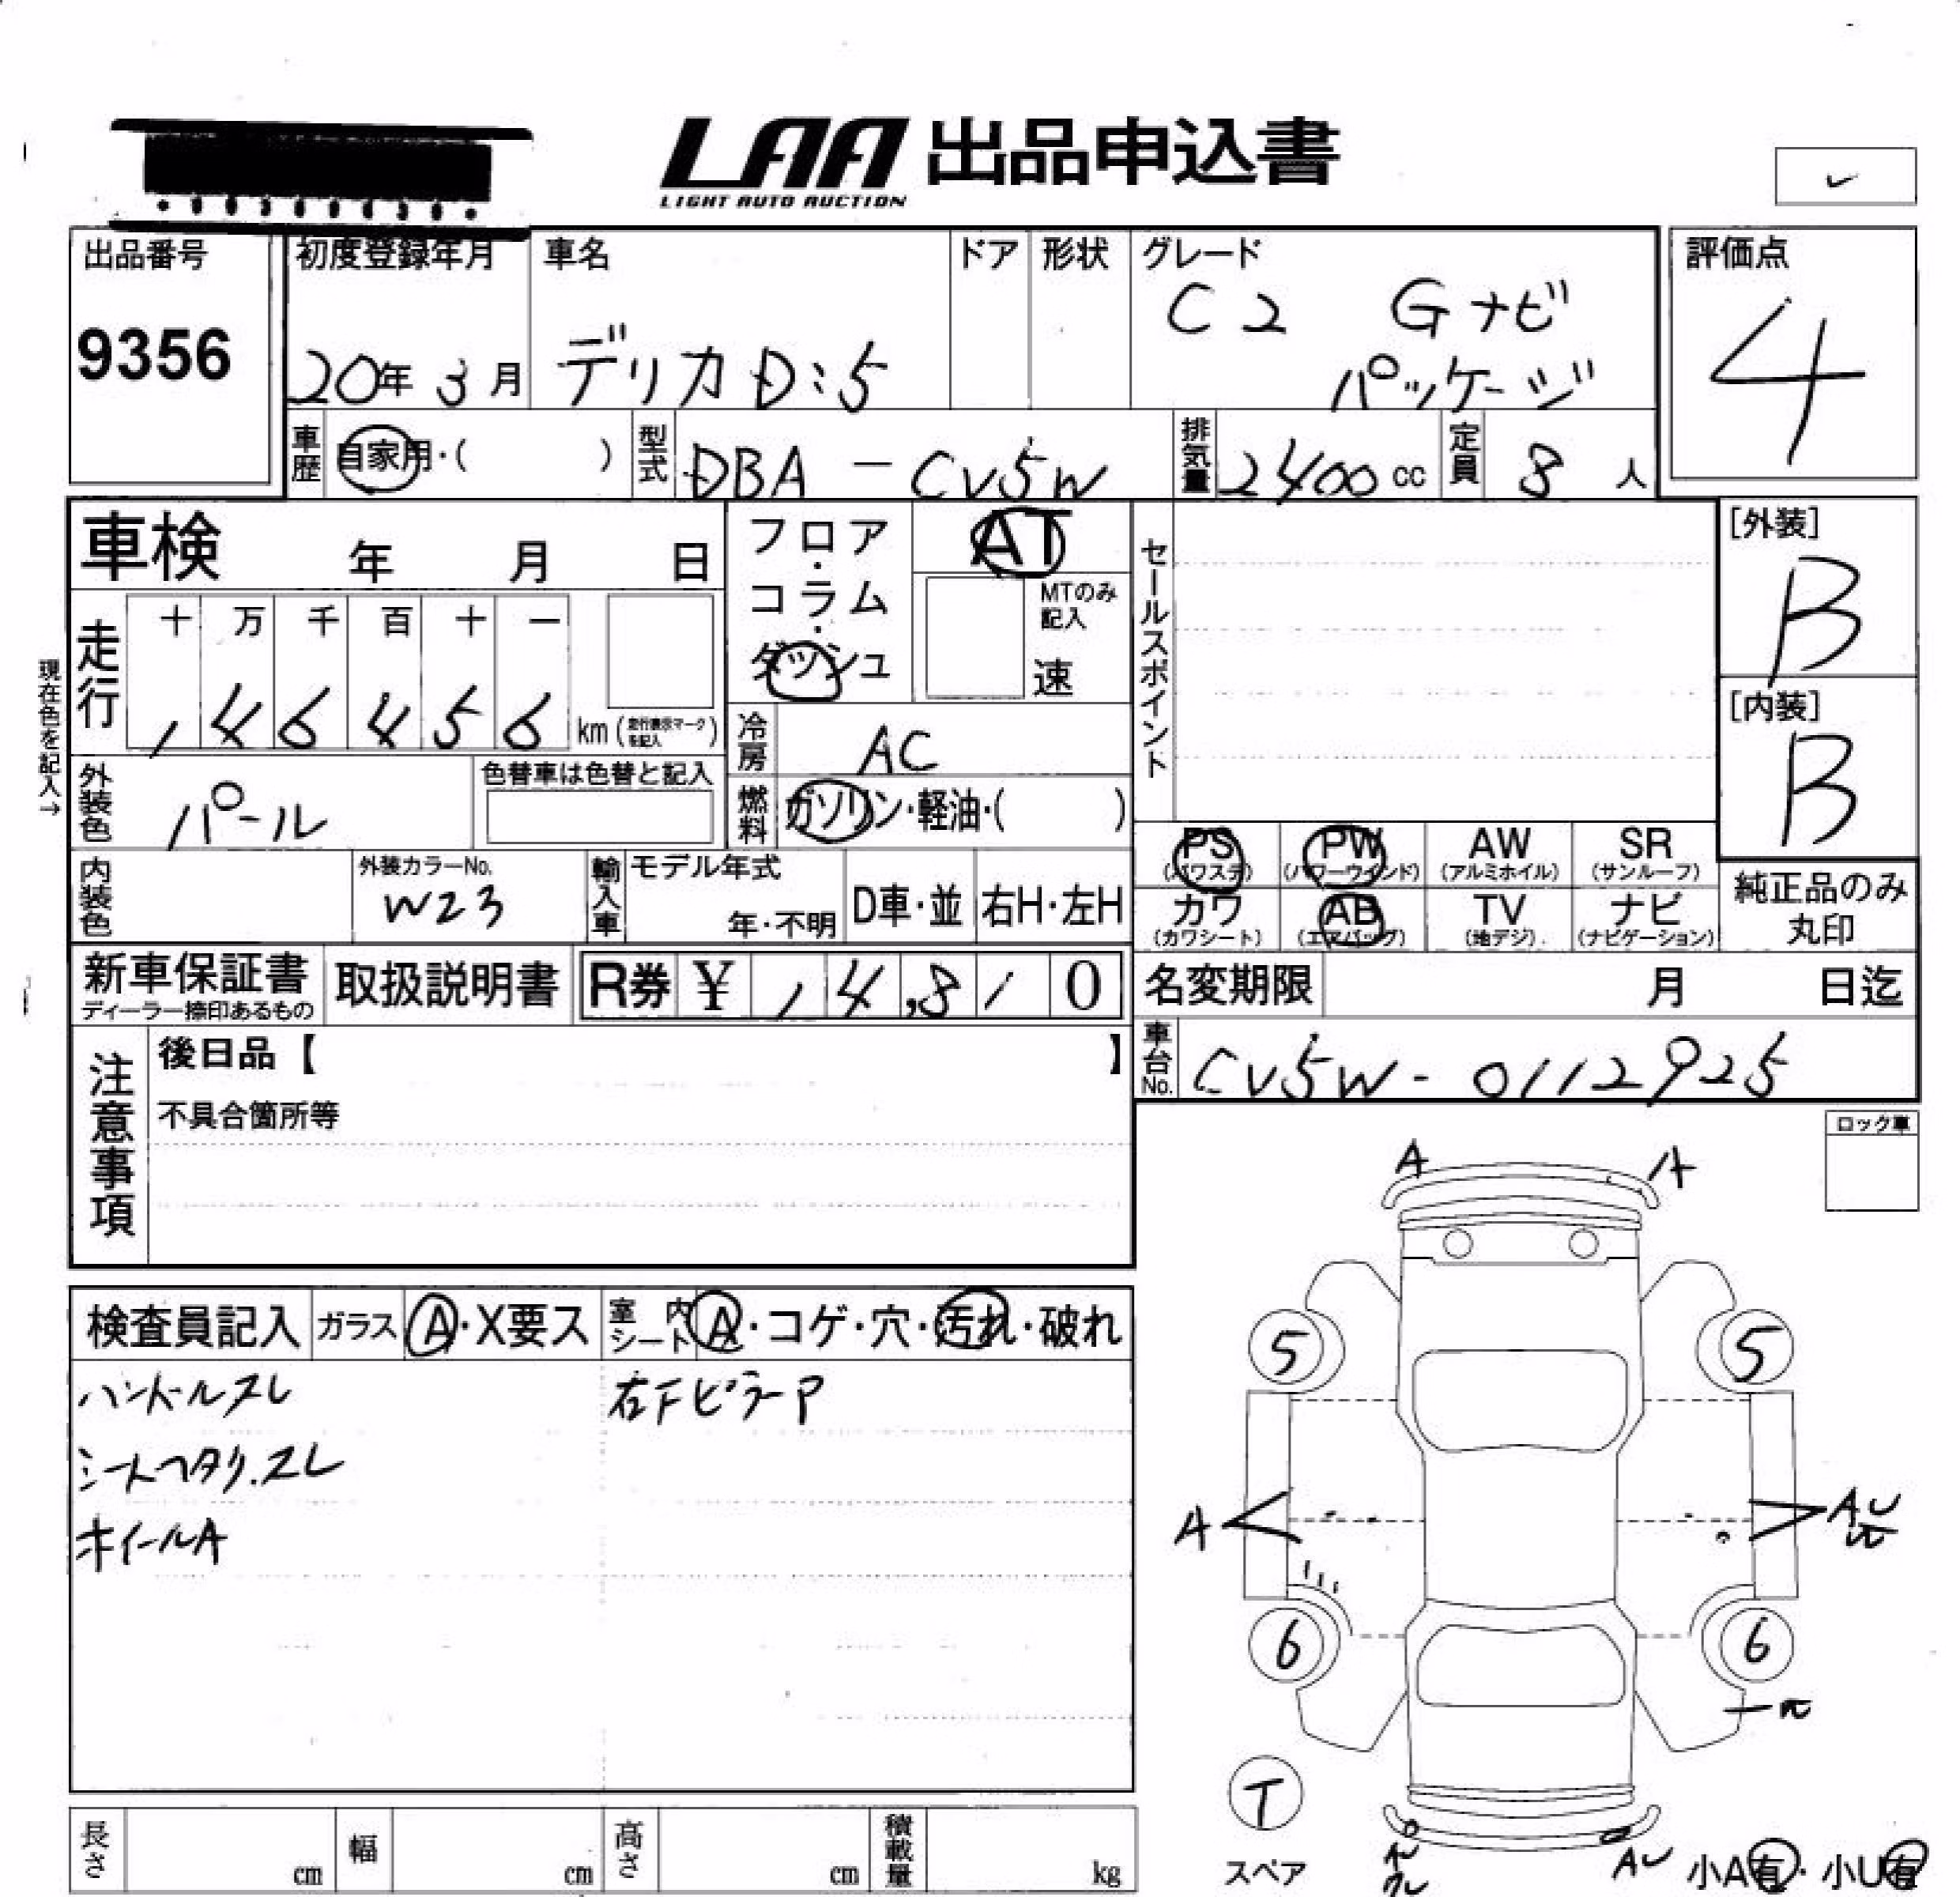 LAA 出品申込書
LIGHT AUTO AUCTION
出品番号
9356
初度登録年月
20年 3月
車名
デリカD:5
ドア
形状
グレード
C2 Gナビ
パッケージ
評価点
4
車歴
自家用・( )
型式
DBA-CV5W
排気量
2400cc
定員
8人
車検 年 月 日
走行
十 万 千 百 十 一
146456
km(走行表示マークを記入)
現在色を記入→
フロア・コラム・ダッシュ
AT
MTのみ記入
速
冷房
AC
燃料
ガソリン・軽油・( )
セールスポイント
[外装]
B
[内装]
B
外装色
パール
色替車は色替と記入
内装色
外装カラーNo.
W23
輸入車
モデル年式
年・不明
D車・並
右H・左H
PS (パワステ)
PW (パワーウインド)
AW (アルミホイル)
SR (サンルーフ)
カワ (カワシート)
AB (エアバッグ)
TV (地デジ)
ナビ (ナビゲーション)
純正品のみ
丸印
新車保証書
ディーラー捺印あるもの
取扱説明書
R券 ¥ 14,810
名変期限 月 日迄
車台No.
CV5W-0112925
注意事項
後日品【 】
不具合箇所等
ロック車
検査員記入
ガラス
A・X要ス
室内シート
A・コゲ・穴・汚れ・破れ
ハンドルスレ
右FピラーP
シートヘタリ.スレ
ホイールA
A A
5 5
A AU
6 6
T
スペア
AU
小A有・小U有
長さ cm
幅 cm
高さ cm
積載量 kg